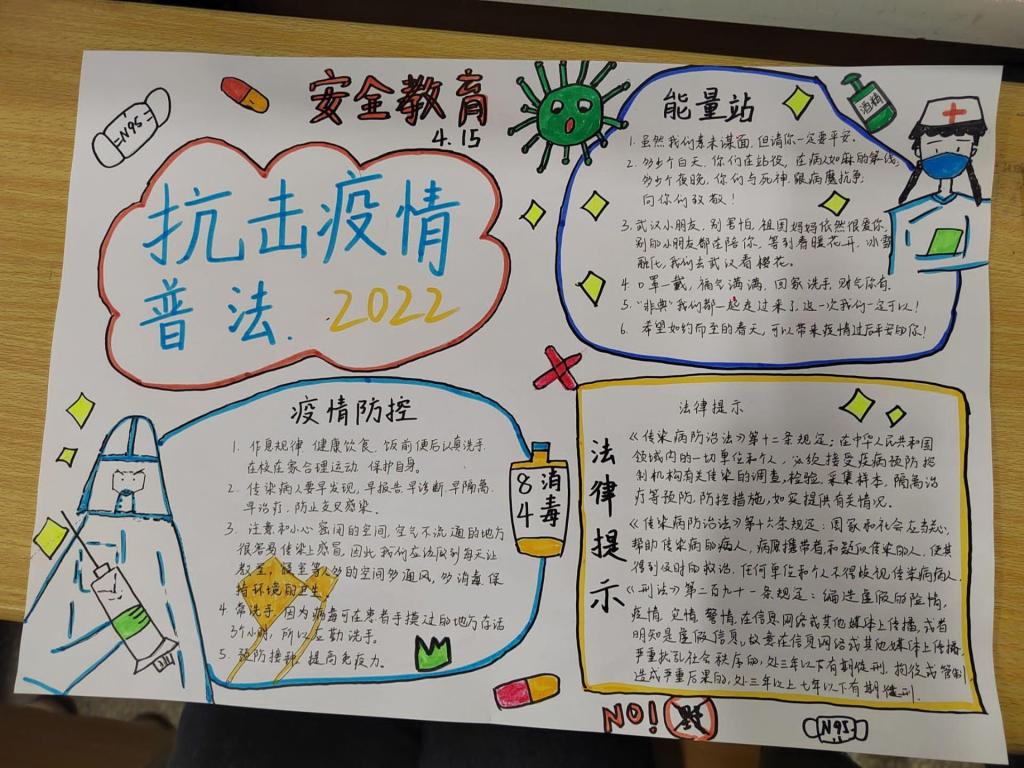 安全教育
4.15
N95
抗击疫情
普法.
2022
能量站
酒精
1. 虽然我们素未谋面,但请你一定要平安.
2. 多少个白天,你们在站夜,在病人如麻的第线,
多少个夜晚,你们与死神,跟病魔抗争.
向你们致敬!
3. 武汉小朋友,别害怕,祖国妈妈依然很爱你,
别的小朋友都在陪你,等到春暖花开,冰雪
融化,我们去武汉看樱花.
4. 口罩一戴,福气满满,回家洗手,财气你有.
5. "非典"我们都一起走过来了,这一次我们一定可以!
6. 希望如约而至的春天,可以带来疫情过后平安的你!
疫情防控
1. 作息规律,健康饮食,饭前便后认真洗手.
在校在家合理运动,保护自身.
2. 传染病人要早发现,早报告,早诊断,早隔离,
早治疗,防止交叉感染.
3. 注意和小心密闭的空间,空气不流通的地方
很容易传染上感冒,因此我们在该做到每天让
教室,寝室等人多的空间多通风,多消毒,保
持环境的卫生.
4. 常洗手,因为病毒可在患者手摸过的地方存活
3个小时,所以应勤洗手.
5. 预防接种,提高免疫力.
84
消毒
法律提示
法律提示
《传染病防治法》第十二条规定:在中华人民共和国
领域内的一切单位和个人,必须接受疾病预防控
制机构有关传染的调查,检验,采集样本,隔离治
疗等预防,防控措施,如实提供有关情况.
《传染病防治法》第十六条规定:国家和社会应当关心,
帮助传染病的病人,病原携带者,和疑似传染的人,使其
得到及时的救治,任何单位和个人不得歧视传染病病人.
《刑法》第二百九十一条规定:编造虚假的险情,
疫情,灾情,警情,在信息网络或其他媒体上传播,或者
明知是虚假信息,故意在信息网络或其他媒体上传播,
严重扰乱社会秩序的,处三年以下有期徒刑,拘役或管制,
造成严重后果的,处三年以上七年以下有期徒刑.
NO!
野
N95